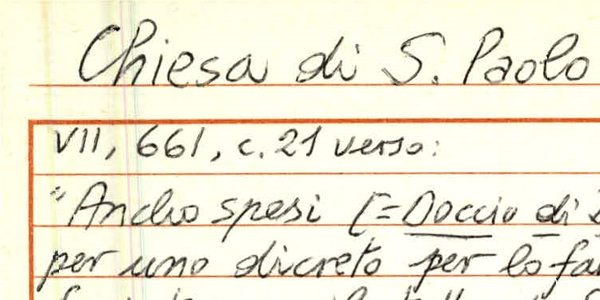 Chiesa di S. Paolo
VII, 661, c. 21 verso:
"Ancho spesi [=Doccio di
per uno dicreto per lo